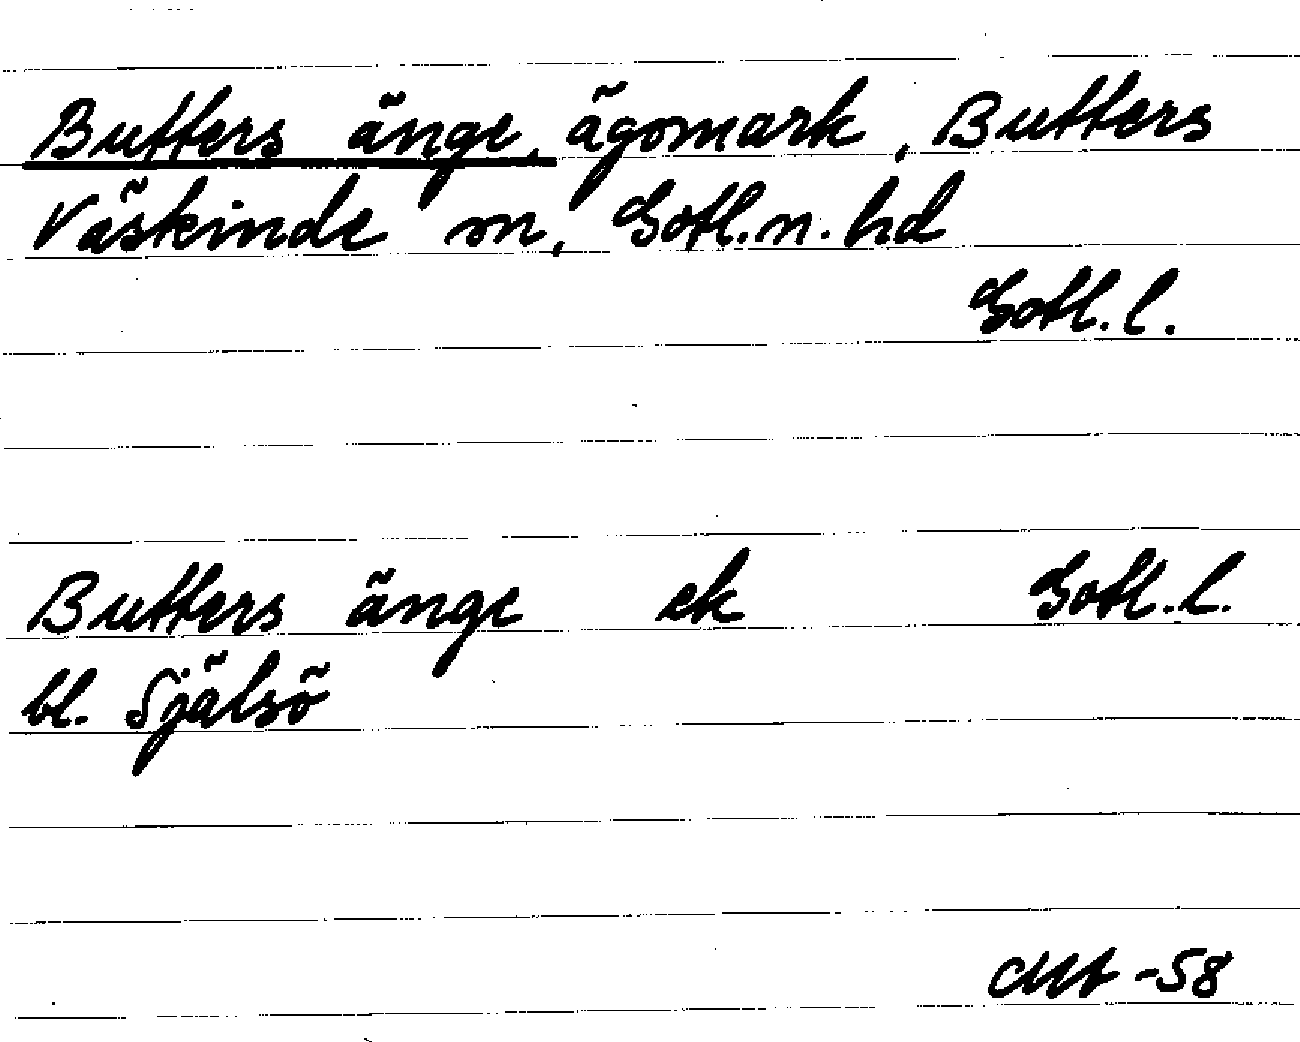 Butters änge, ägomark, Butters
Väskinde sn, Gotl. n. hd
Gotl. l.
Butters änge ek Gotl. l.
bl. Själsö
-58